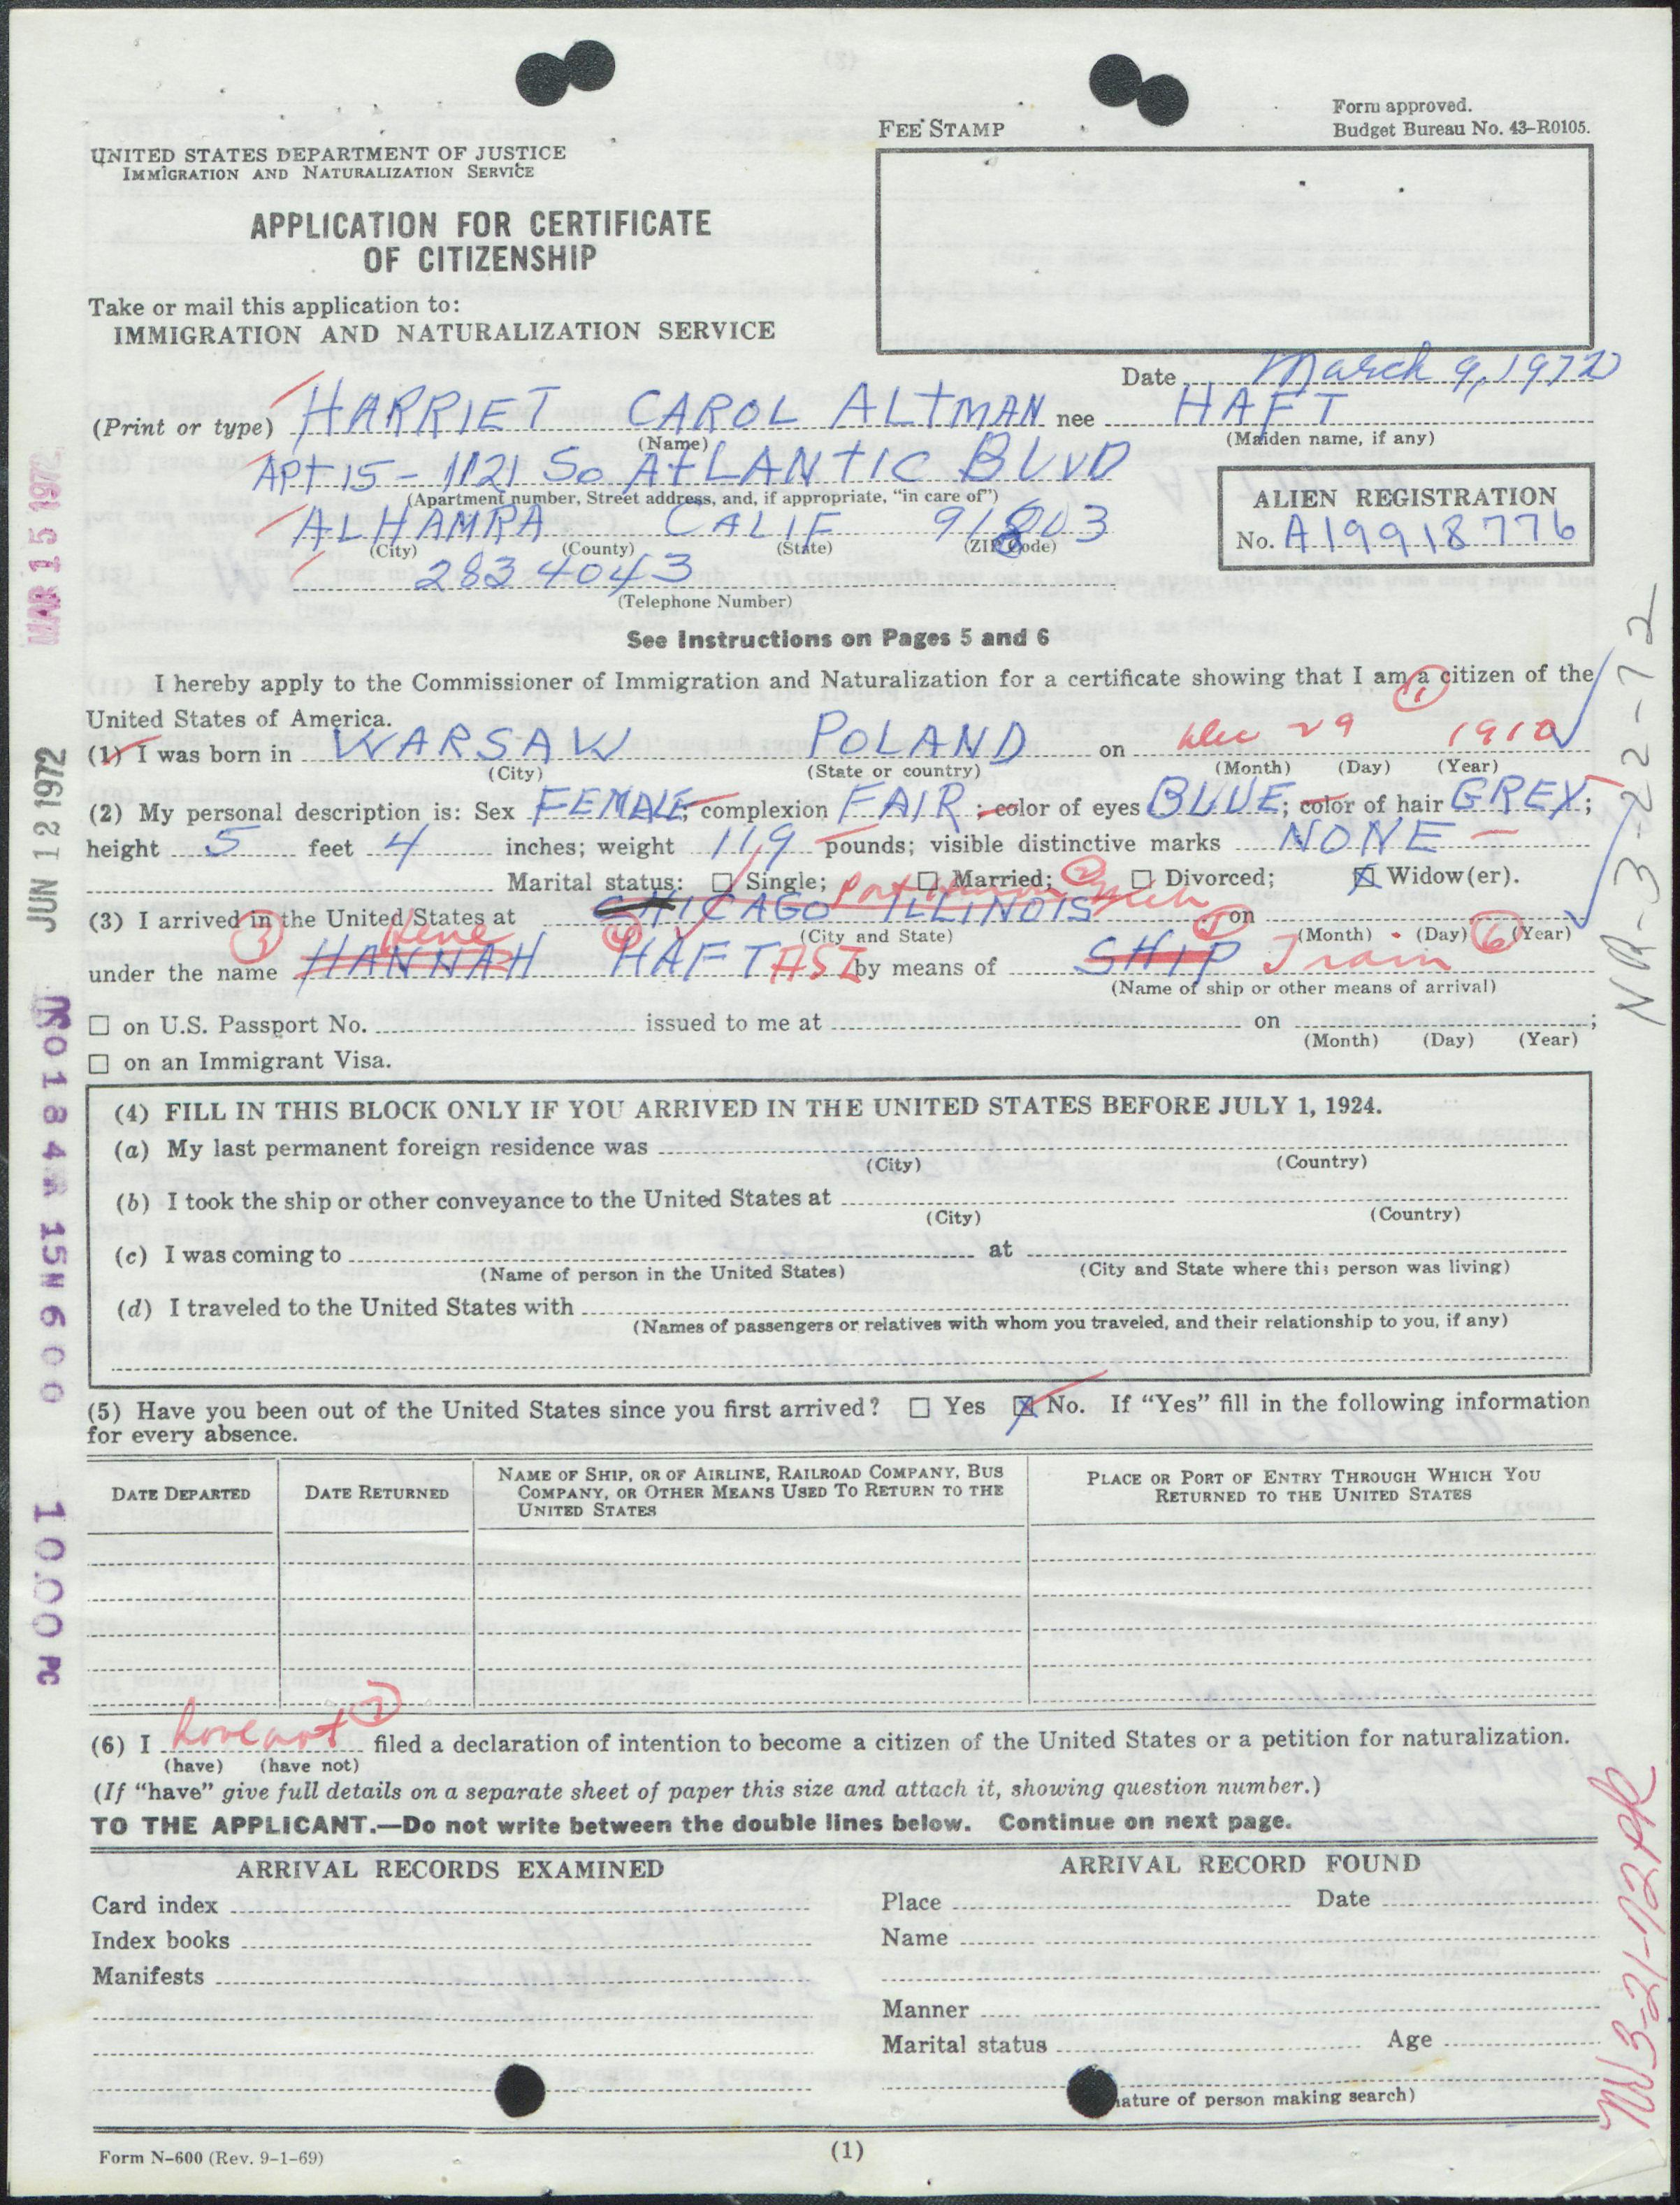 Form approved.
Budget Bureau No. 43-R0105.
FEE STAMP
UNITED STATES DEPARTMENT OF JUSTICE
IMMIGRATION AND NATURALIZATION SERVICE
APPLICATION FOR CERTIFICATE
OF CITIZENSHIP
Take or mail this application to:
IMMIGRATION AND NATURALIZATION SERVICE
Date March 9, 1972
(Print or type) HARRIET CAROL ALTMAN nee HAFT
(Name) (Maiden name, if any)
APT 15 - 1121 So ATLANTIC BLVD
(Apartment number, Street address, and, if appropriate, "in care of")
ALHAMRA CALIF 91803
(City) (County) (State) (ZIP Code)
283 4043
(Telephone Number)
ALIEN REGISTRATION
No. A19918776
See Instructions on Pages 5 and 6
I hereby apply to the Commissioner of Immigration and Naturalization for a certificate showing that I am a citizen of the
United States of America. 1
(1) I was born in WARSAW POLAND on Dec 29 1910
(City) (State or country) (Month) (Day) (Year)
(2) My personal description is: Sex FEMALE; complexion FAIR; color of eyes BLUE; color of hair GREY;
height 5 feet 4 inches; weight 119 pounds; visible distinctive marks NONE
Marital status: Single; Married; Divorced; Widow(er).
Port Huron Mich 2
(3) I arrived in the United States at CHICAGO ILLINOIS on
(City and State) (Month) (Day) (Year)
3 4 5 6
under the name HANNAH HAFTASZ by means of SHIP Train
(Name of ship or other means of arrival)
on U.S. Passport No. issued to me at on ;
(Month) (Day) (Year)
on an Immigrant Visa.
(4) FILL IN THIS BLOCK ONLY IF YOU ARRIVED IN THE UNITED STATES BEFORE JULY 1, 1924.
(a) My last permanent foreign residence was
(City) (Country)
(b) I took the ship or other conveyance to the United States at
(City) (Country)
(c) I was coming to at
(Name of person in the United States) (City and State where this person was living)
(d) I traveled to the United States with
(Names of passengers or relatives with whom you traveled, and their relationship to you, if any)
(5) Have you been out of the United States since you first arrived? Yes No. If "Yes" fill in the following information
for every absence.
DATE DEPARTED
DATE RETURNED
NAME OF SHIP, OR OF AIRLINE, RAILROAD COMPANY, BUS
COMPANY, OR OTHER MEANS USED TO RETURN TO THE
UNITED STATES
PLACE OR PORT OF ENTRY THROUGH WHICH YOU
RETURNED TO THE UNITED STATES
(6) I have not 7 filed a declaration of intention to become a citizen of the United States or a petition for naturalization.
(have) (have not)
(If "have" give full details on a separate sheet of paper this size and attach it, showing question number.)
TO THE APPLICANT.—Do not write between the double lines below. Continue on next page.
ARRIVAL RECORDS EXAMINED
Card index
Index books
Manifests
ARRIVAL RECORD FOUND
Place Date
Name
Manner
Marital status Age
ature of person making search)
Form N-600 (Rev. 9-1-69)
(1)
MAR 15 1972
JUN 12 1972
15N600
10.00 PC
NR-3-22-72
3-21-72